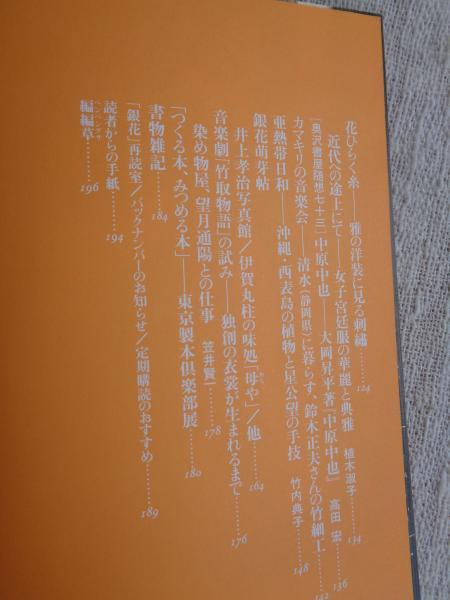 花ひらく糸――雅の洋装に見る刺繡………124
近代への途上にて――女子宮廷服の華麗と典雅　植木淑子………134
「奥沢書屋随想七十三」中原中也――大岡昇平著『中原中也』　高田 宏………136
カマキリの音楽会――清水(静岡県)に暮らす、鈴木正夫さんの竹細工………142
亜熱帯日和――沖縄・西表島の植物と星公望の手技　竹内典子………148
銀花萌芽帖
井上孝治写真館／伊賀丸柱の味処「母や」／他………164
かか
音楽劇「竹取物語」の試み――独創の衣裳が生まれるまで………176
染め物屋、望月通陽との仕事　笠井賢一………178
「つくる本、みつめる本」――東京製本俱楽部展………180
書物雑記………184
「銀花」再読室／バックナンバーのお知らせ／定期購読のおすすめ………189
読者からの手紙………194
編編草………196
ペンペンクサ